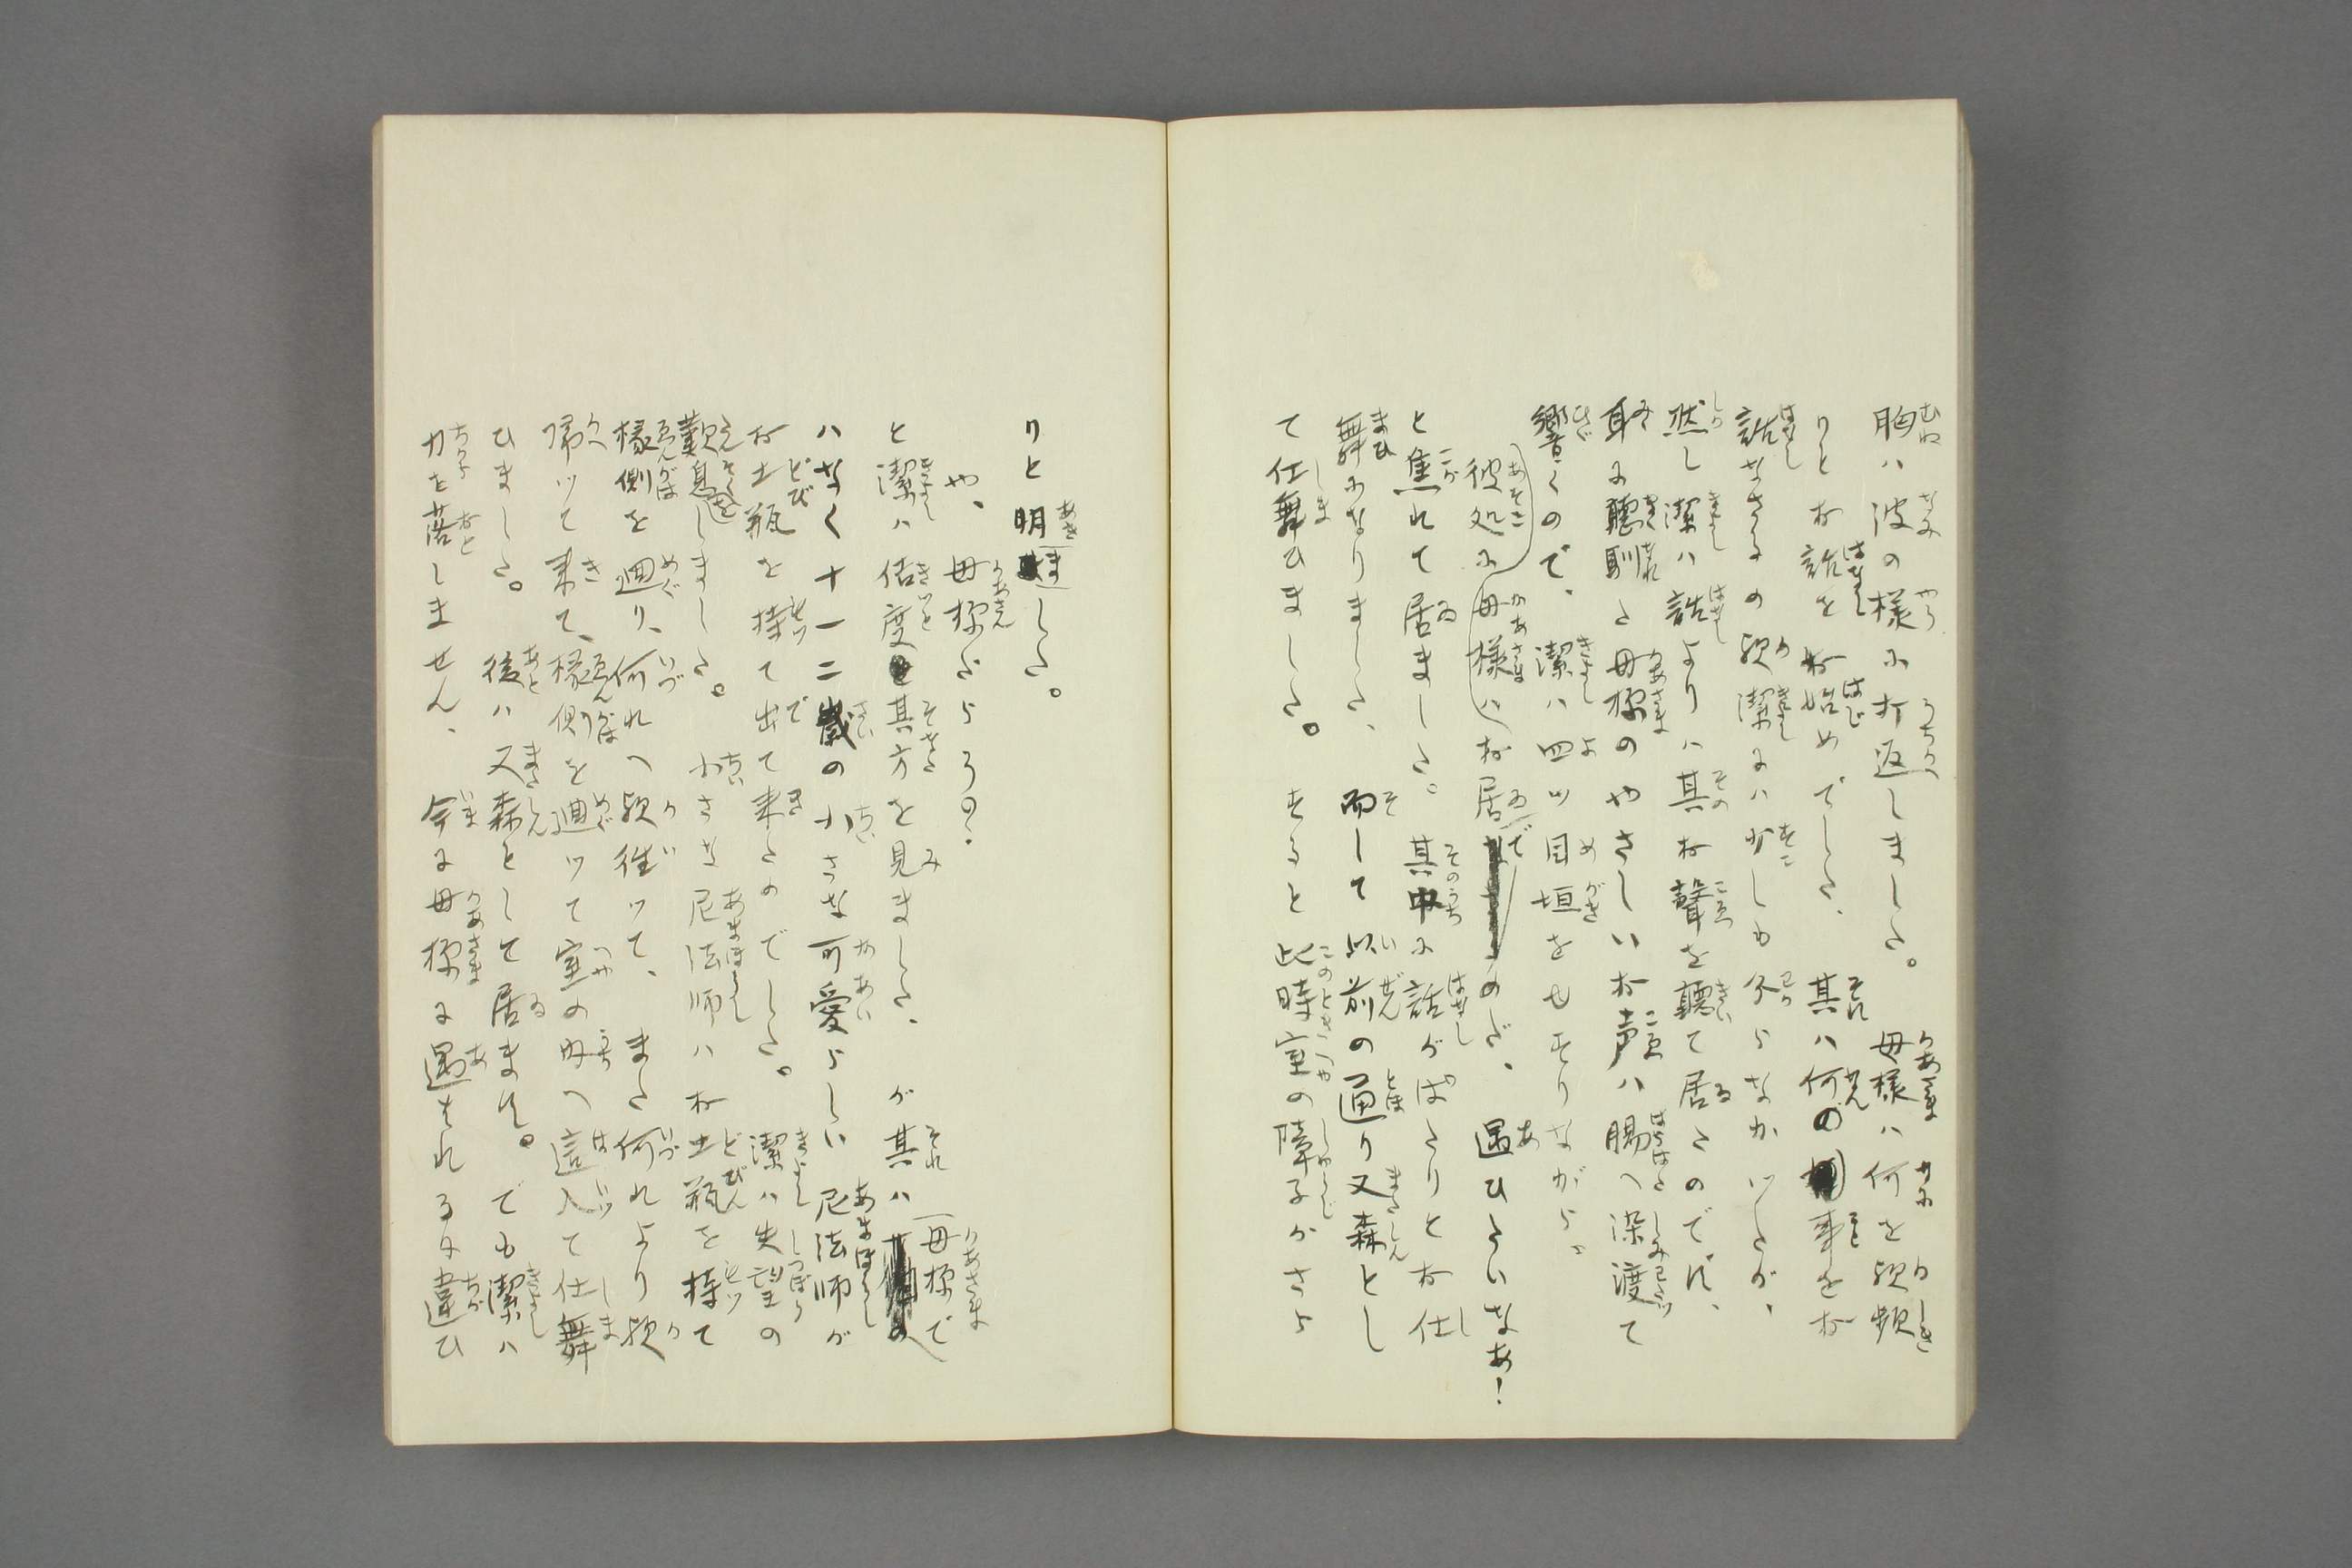 胸ハ波の様に打返しました。　母様ハ何を欤頻
りとお話をお始めでした、　其ハ何の事をお
話なさるの欤潔にハ少しも分らなかツたが、
然し潔ハ話よりハ其お聲を聽て居たのです、
耳に聽馴た母様のやさしいお声ハ腸へ染渡て
響くので、潔ハ四ツ目垣をもそりながら。
彼処に母様ハお居でのだ、　遇ひたいなあ！
と焦れて居ました。　其中に話がぱたりとお仕
舞になりました、　而して以前の通り又森とし
て仕舞ひました。　すると此時室の障子がさら
りと明ました。
や、母様だらうの？
と潔ハ佶度其方を見ました、　が其ハ母様で
ハなく十一二歳の小さな可愛らしい尼法師が
お土瓶を持て出て来たのでした。　潔ハ失望の
歎息をしました。　小さな尼法師ハお土瓶を持て
椽側を廻り、何れへ欤往ツて、　また何れより欤
帰ツて来て、椽側を廻ツて室の内へ這入て仕舞
ひました。　後ハ又森として居ます。　でも潔ハ
力を落しません、　今に母様に遇はれるに違ひ